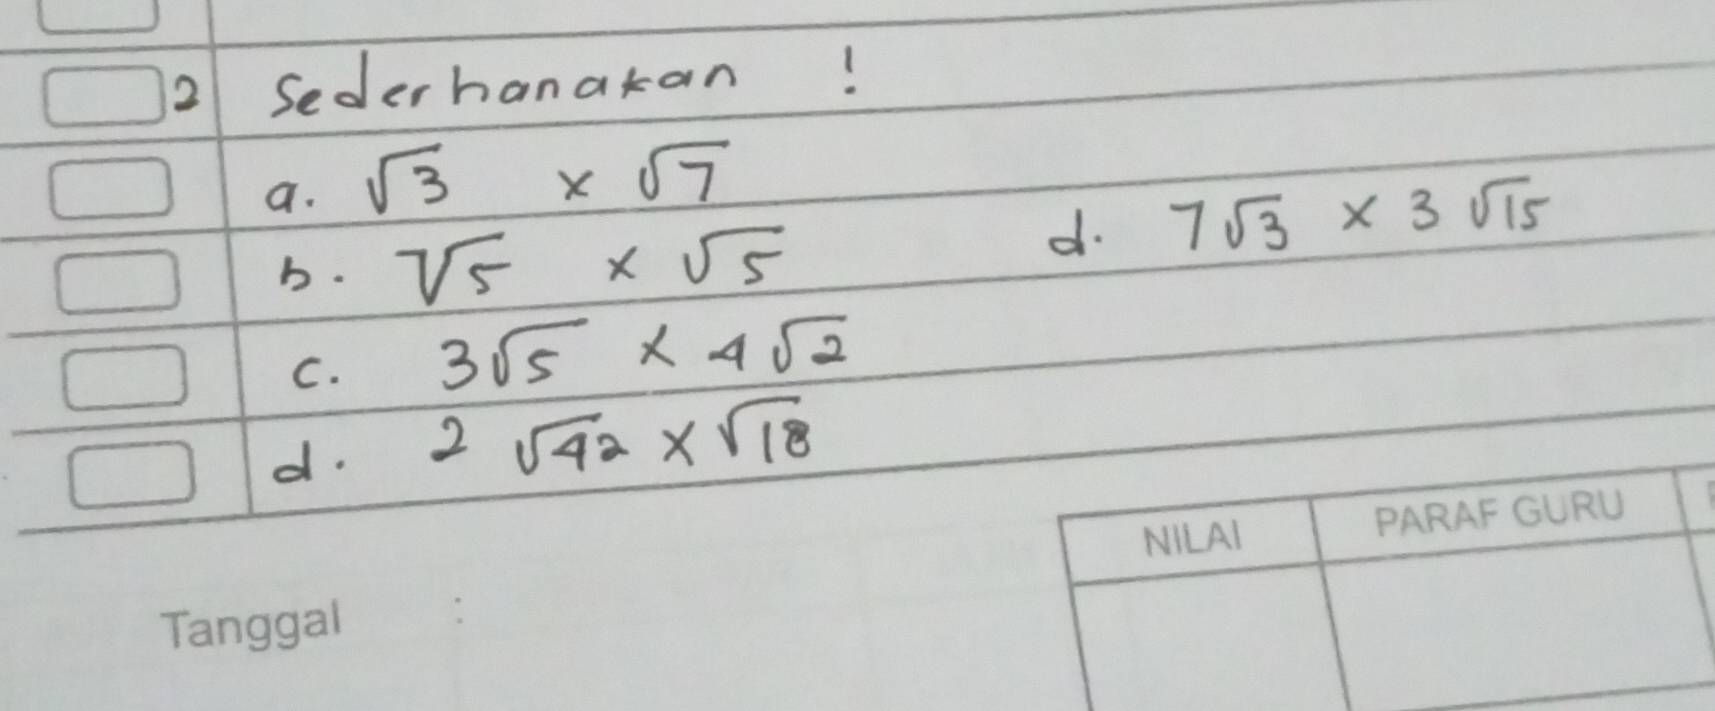 2 Sederhanakan !
a. √3 × √7
b. √5 × √5
c. 3√5 × 4√2
d. 2 √42 × √18
d. 7√3 × 3 √15
NILAI PARAF GURU
Tanggal :